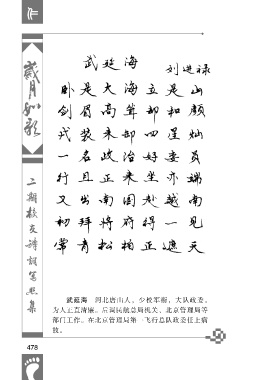 歲月如歌
武延海
刘进禄
卧是大海立是山
剑眉高耸却和颜
戎装未卸四星灿
一名政治好委员
行且正来坐亦端
又出南国赴越南
初拜将府得一见
常青松柏正遮天
二期校友诗词
集
武延海 河北唐山人，少校军衔，大队政委。
为人正直清廉。后调民航总局机关、北京管理局等
部门工作。在北京管理局第一飞行总队政委任上病
故。
478